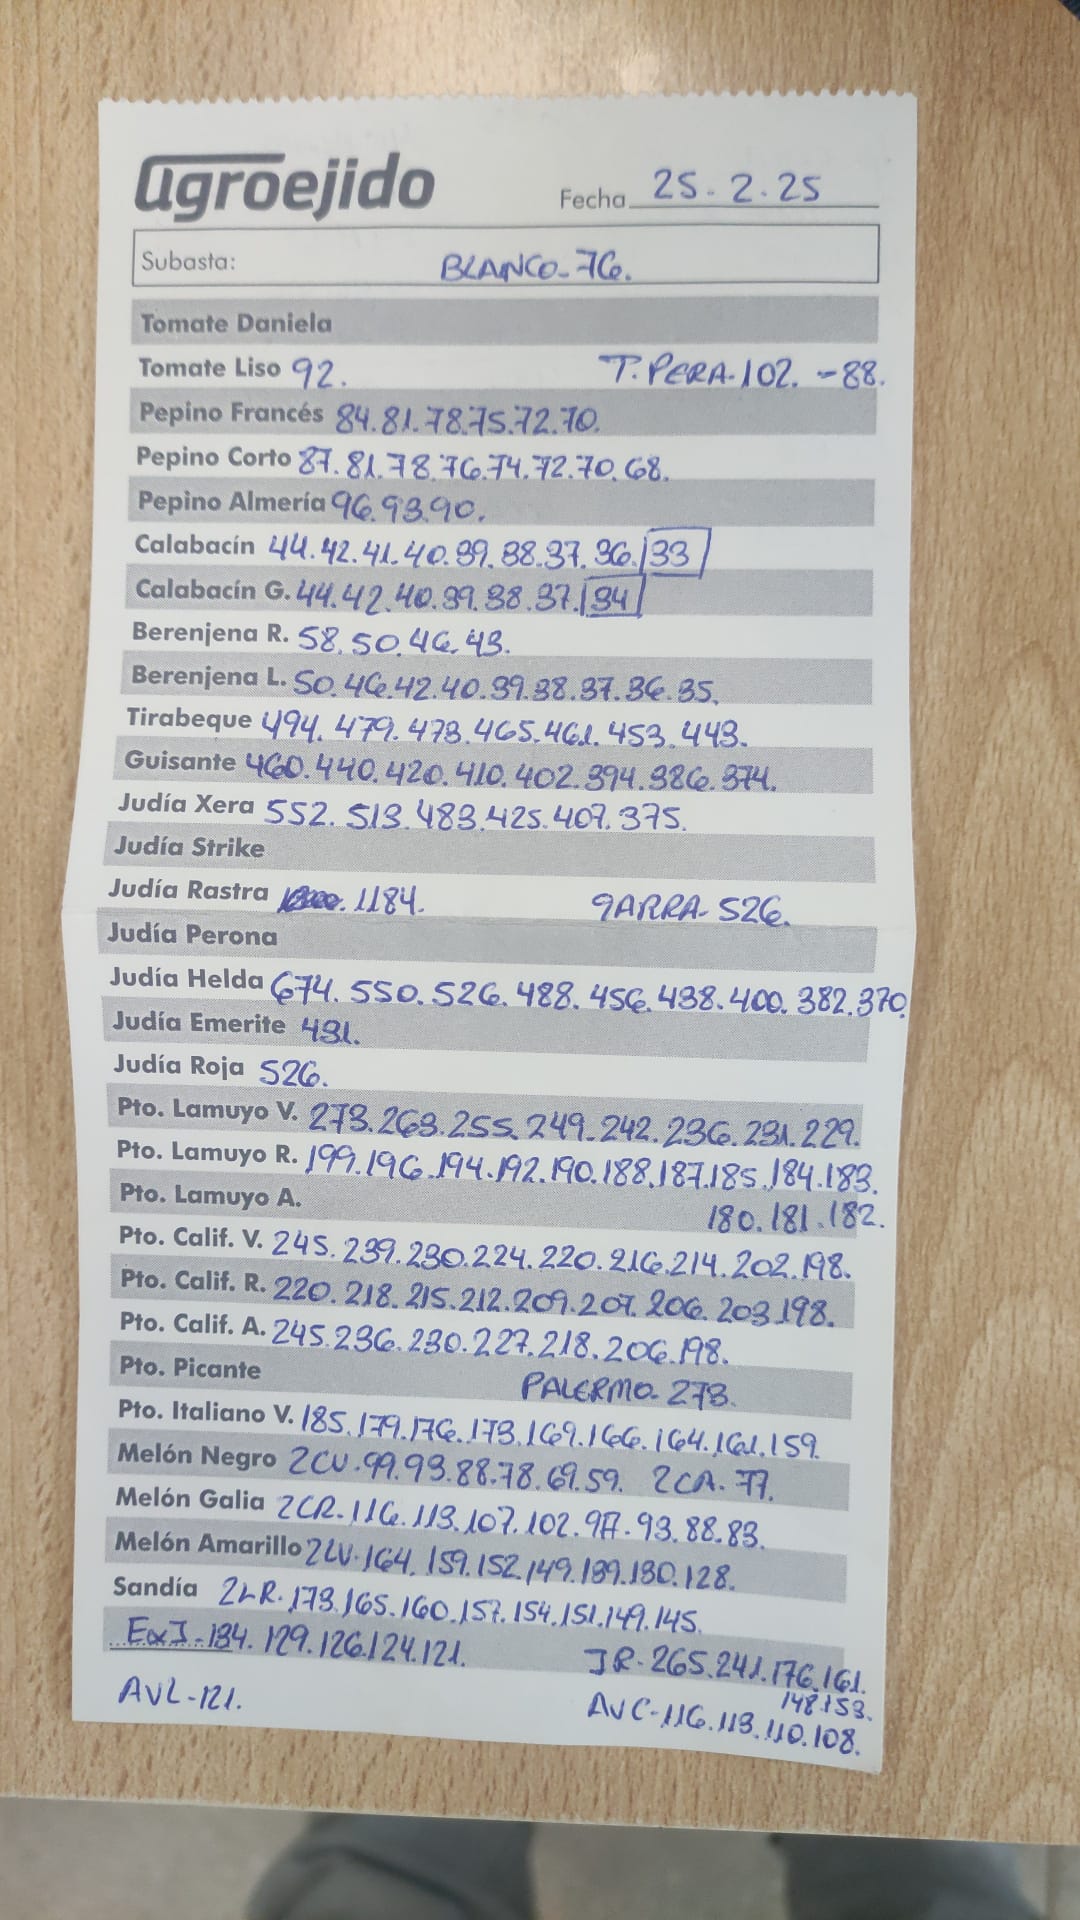 agroejido
Fecha 25.2.25
Subasta: BLANCO-76.
Tomate Daniela
Tomate Liso 92. T.PERA-102.-88.
Pepino Francés 84.81.78.75.72.70.
Pepino Corto 87.81.78.76.74.72.70.68.
Pepino Almería 96.93.90.
Calabacín 44.42.41.40.39.38.37.36.33
Calabacín G. 44.42.40.39.38.37.34
Berenjena R. 58.50.46.43.
Berenjena L. 50.46.42.40.39.38.37.36.35.
Tirabeque 494.479.473.465.461.453.443.
Guisante 460.440.420.410.402.394.386.374.
Judía Xera 552.513.483.425.407.375.
Judía Strike
Judía Rastra 1184. GARRA-526.
Judía Perona
Judía Helda 674.550.526.488.456.438.400.382.370.
Judía Emerite 431.
Judía Roja 526.
Pto. Lamuyo V. 273.263.255.249.242.236.231.229.
Pto. Lamuyo R. 199.196.194.192.190.188.187.185.184.183.
Pto. Lamuyo A. 180.181.182.
Pto. Calif. V. 245.239.230.224.220.216.214.202.198.
Pto. Calif. R. 220.218.215.212.209.207.206.203.198.
Pto. Calif. A. 245.236.230.227.218.206.198.
Pto. Picante PALERMO-273.
Pto. Italiano V. 185.179.176.173.169.166.164.161.159.
Melón Negro 2CV-99.93.88.78.69.59. 2CA-77.
Melón Galia 2CR-116.113.107.102.97.93.88.83.
Melón Amarillo 2LV-164.159.152.149.139.130.128.
Sandía 2LR-173.165.160.157.154.151.149.145.
ExJ-134.129.126.124.121. JR-265.241.176.161.
148.153.
AVL-121. AVC-116.113.110.108.